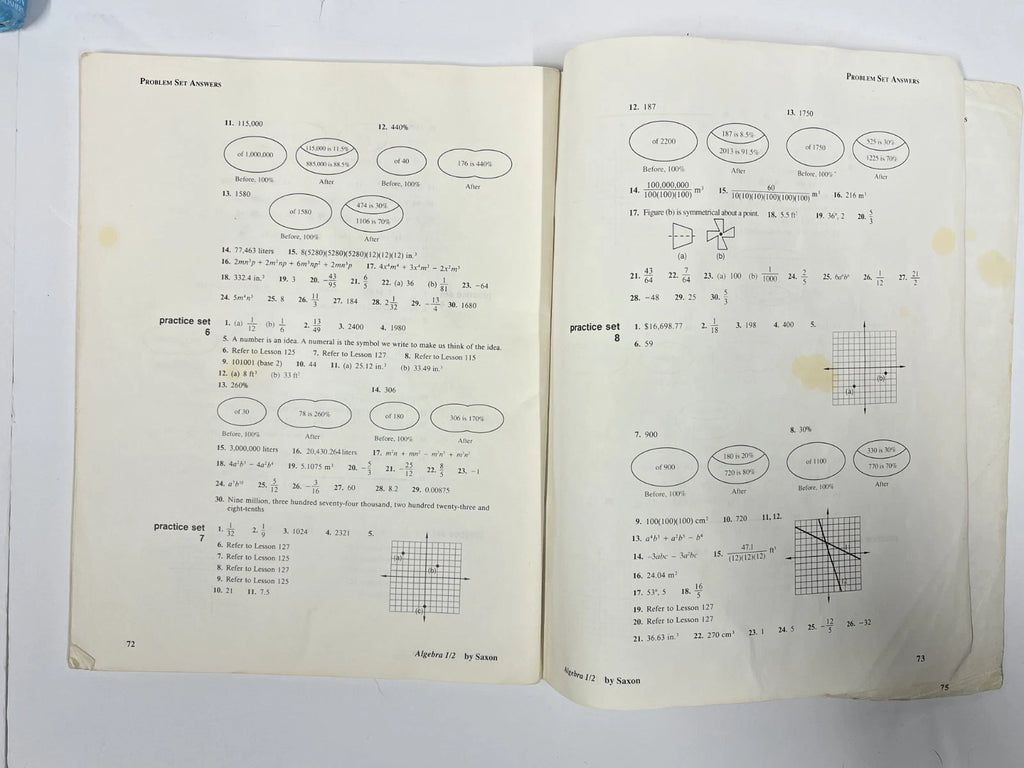 PROBLEM SET ANSWERS
11. 115,000
12. 440%
of 1,000,000
115,000 is 11.5%
885,000 is 88.5%
of 40
176 is 440%
Before, 100%
After
Before, 100%
After
13. 1580
of 1580
474 is 30%
1106 is 70%
Before, 100%
After
14. 77,463 liters 15. 8(5280)(5280)(5280)(12)(12)(12) in.³
18. 332.4 in.² 19. 3 20. -43/95 21. 6/5 22. (a) 36 (b) 1/81 23. -64
24. 5m⁴n³ 25. 8 26. 11/3 27. 184 28. 2 1/32 29. -13/4 30. 1680
practice set
6
1. (a) 1/12 (b) 1/6 2. 13/49 3. 2400 4. 1980
5. A number is an idea. A numeral is the symbol we write to make us think of the idea.
6. Refer to Lesson 125 7. Refer to Lesson 127 8. Refer to Lesson 115
9. 101001 (base 2) 10. 44 11. (a) 25.12 in.² (b) 33.49 in.³
12. (a) 8 ft³ (b) 33 ft²
13. 260%
14. 306
of 30
78 is 260%
of 180
306 is 170%
Before, 100%
After
Before, 100%
After
15. 3,000,000 liters 16. 20,430.264 liters 17.
18. 19. 5.1075 m³ 20. -5/3 21. -25/12 22. 8/5 23. -1
24. 25. 5/12 26. -3/16 27. 60 28. 8.2 29. 0.00875
30. Nine million, three hundred seventy-four thousand, two hundred twenty-three and
eight-tenths
practice set
7
1. 1/32 2. 1/9 3. 1024 4. 2321 5.
(a)
(b)
(c)
6. Refer to Lesson 127
7. Refer to Lesson 125
8. Refer to Lesson 127
9. Refer to Lesson 125
10. 21 11. 7.5
72
Algebra 1/2 by Saxon
PROBLEM SET ANSWERS
12. 187
13. 1750
of 2200
187 is 8.5%
2013 is 91.5%
of 1750
525 is 30%
1225 is 70%
Before, 100%
After
Before, 100%
After
14. 100,000,000/100(100)(100) m³ 15. 60/10(10)(10)(100)(100)(100) m³ 16. 216 m³
17. Figure (b) is symmetrical about a point. 18. 5.5 ft² 19. 36°, 2 20. 5/3
(a)
(b)
21. 43/64 22. 7/64 23. (a) 100 (b) 1/1000 24. 2/5 25. 26. 1/12 27. 21/2
28. -48 29. 25 30. 5/3
practice set
8
1. $16,698.77 2. 1/18 3. 198 4. 400 5.
(a)
(b)
6. 59
7. 900
8. 30%
of 900
180 is 20%
720 is 80%
of 1100
330 is 30%
770 is 70%
Before, 100%
After
Before, 100%
After
9. 100(100)(100) cm³ 10. 720 11, 12.
12
13.
14. -3abc - 3a²bc 15. 47.1/(12)(12)(12) ft³
16. 24.04 m²
17. 53°, 5 18. 16/5
19. Refer to Lesson 127
20. Refer to Lesson 127
21. 36.63 in.² 22. 270 cm³ 23. 1 24. 5 25. -12/5 26. -32
73
Algebra 1/2 by Saxon
75
S